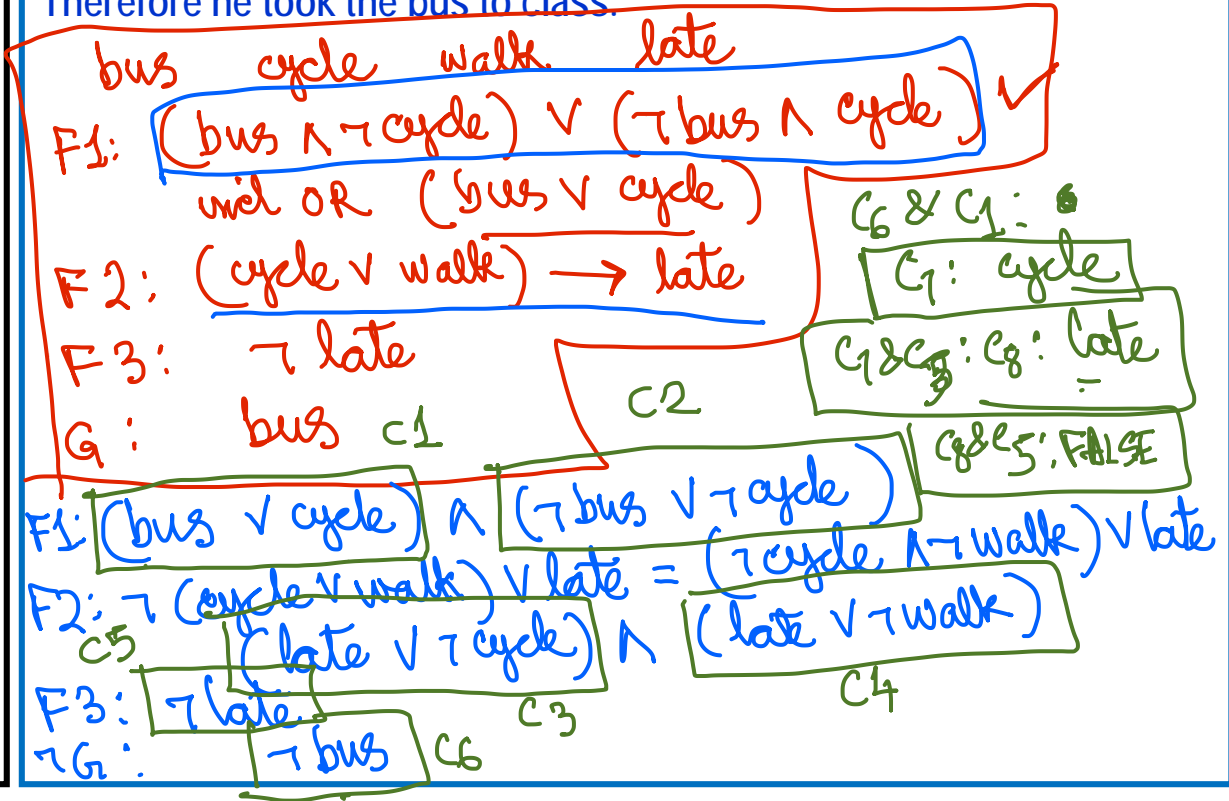 Therefore he took the bus to class.
bus cycle walk late
F1: (bus ∧ ¬ cycle) ∨ (¬ bus ∧ cycle) ✓
incl OR (bus ∨ cycle)
F2: (cycle ∨ walk) → late
F3: ¬ late
G: bus
C6 & C1:
C7: cycle
C7 & C3: C8: late
C8 & C5: FALSE
C1
C2
F1: (bus ∨ cycle) ∧ (¬ bus ∨ ¬ cycle)
F2: ¬ (cycle ∨ walk) ∨ late = (¬ cycle ∧ ¬ walk) ∨ late
(late ∨ ¬ cycle) ∧ (late ∨ ¬ walk)
C5
C3
C4
F3: ¬ late
¬G: ¬ bus C6